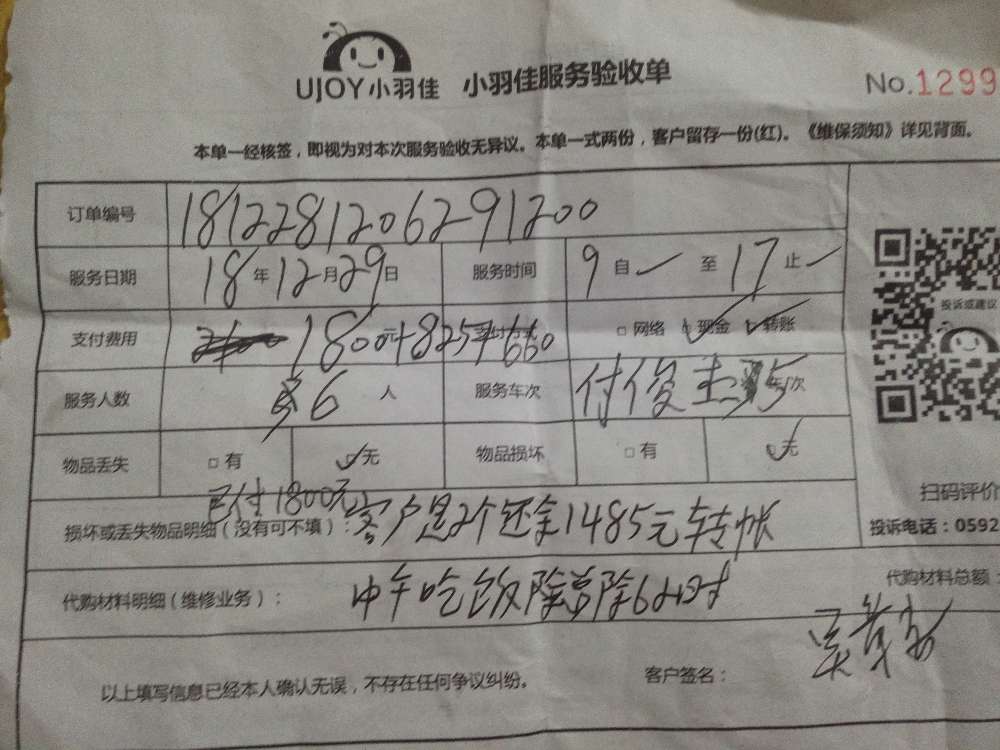 UJOY小羽佳 小羽佳服务验收单 No.1299
本单一经核签，即视为对本次服务验收无异议。本单一式两份，客户留存一份(红)。《维保须知》详见背面。
订单编号 1812281206291200
服务日期 18年12月29日 服务时间 9自✓至17止✓
支付费用 1800元+825+660 □网络 ☑现金 ☑转账
投诉或建议
服务人数 6人 服务车次 付俊
物品丢失 □有 ☑无 物品损坏 □有 ☑无
扫码评价
已付1800元
损坏或丢失物品明细（没有可不填）：客户是2个还余1485元转帐
投诉电话：0592
代购材料明细（维修业务）：中午吃饭除总除6小时
代购材料总额：
以上填写信息已经本人确认无误，不存在任何争议纠纷。 客户签名：